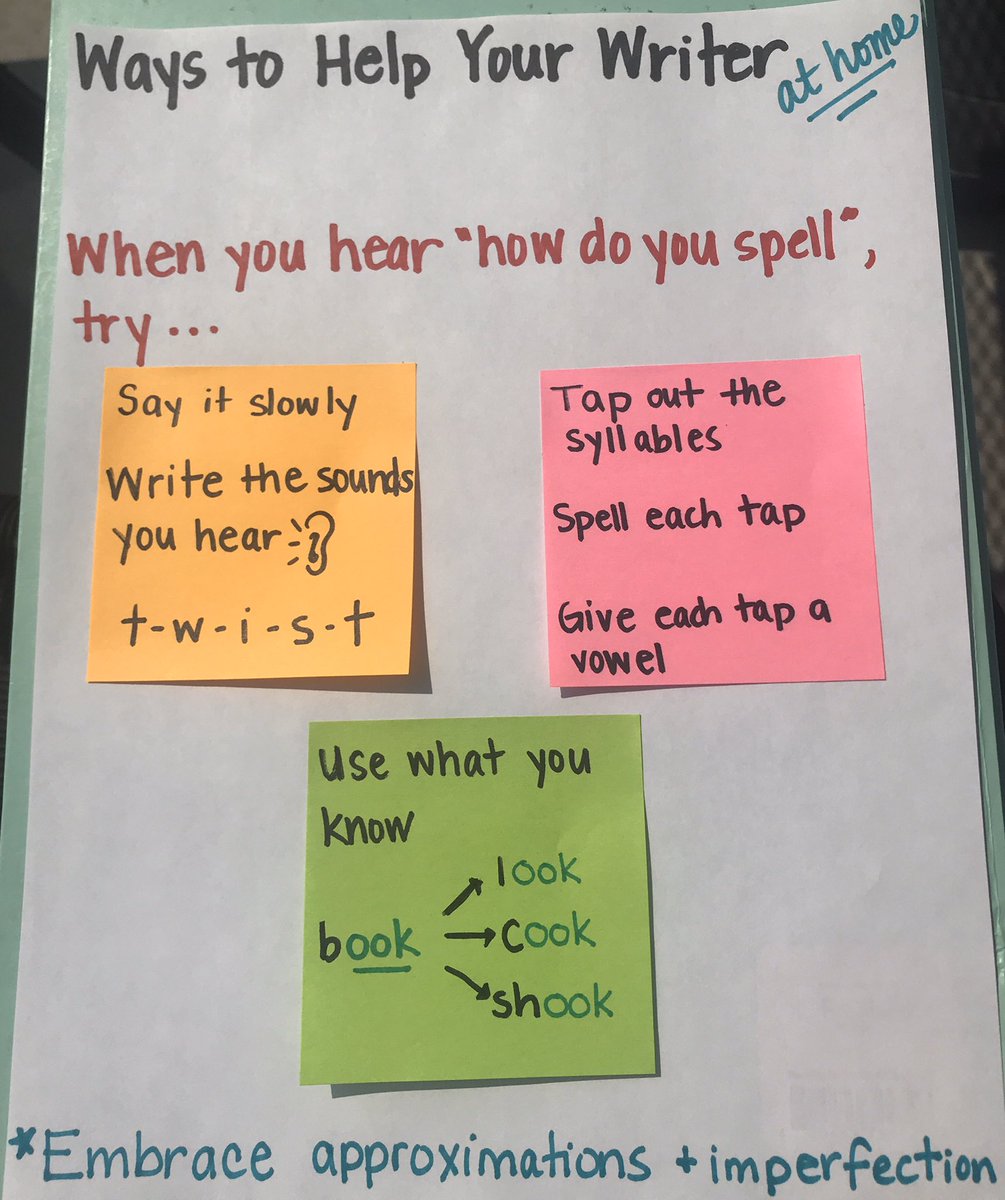 Ways to Help Your Writer at home
When you hear "how do you spell",
try...
Say it slowly
Write the sounds
you hear
t-w-i-s-t
Tap out the
syllables
Spell each tap
Give each tap a
vowel
Use what you
know
look
book cook
shook
*Embrace approximations + imperfection